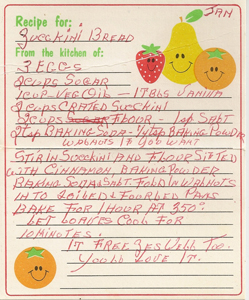 JAN
Recipe for:
Succkini Bread
From the kitchen of:
3 EGGS
2 cups SUGAR
1 cup VEG OIL - 1 Tbls VANILLA
2 cups GRATED Succkini
3 cups FLOUR - 1 tsp SALT
2 tsp BAKING SODA - 1/4 tsp BAKING POWDER
WALNUTS IF YOU WANT
STIR IN Succkini AND FLOUR SIFTED
WITH CINNAMON, BAKING POWDER
BAKING SODA & SALT. FOLD IN WALNUTS
IN TO 2 OILED & FLOURED PANS
BAKE FOR 1 HOUR AT 350°
LET LOAVES COOL FOR
10 MINUTES.
IT FREEZES WELL TOO.
YOU'LL LOVE IT.